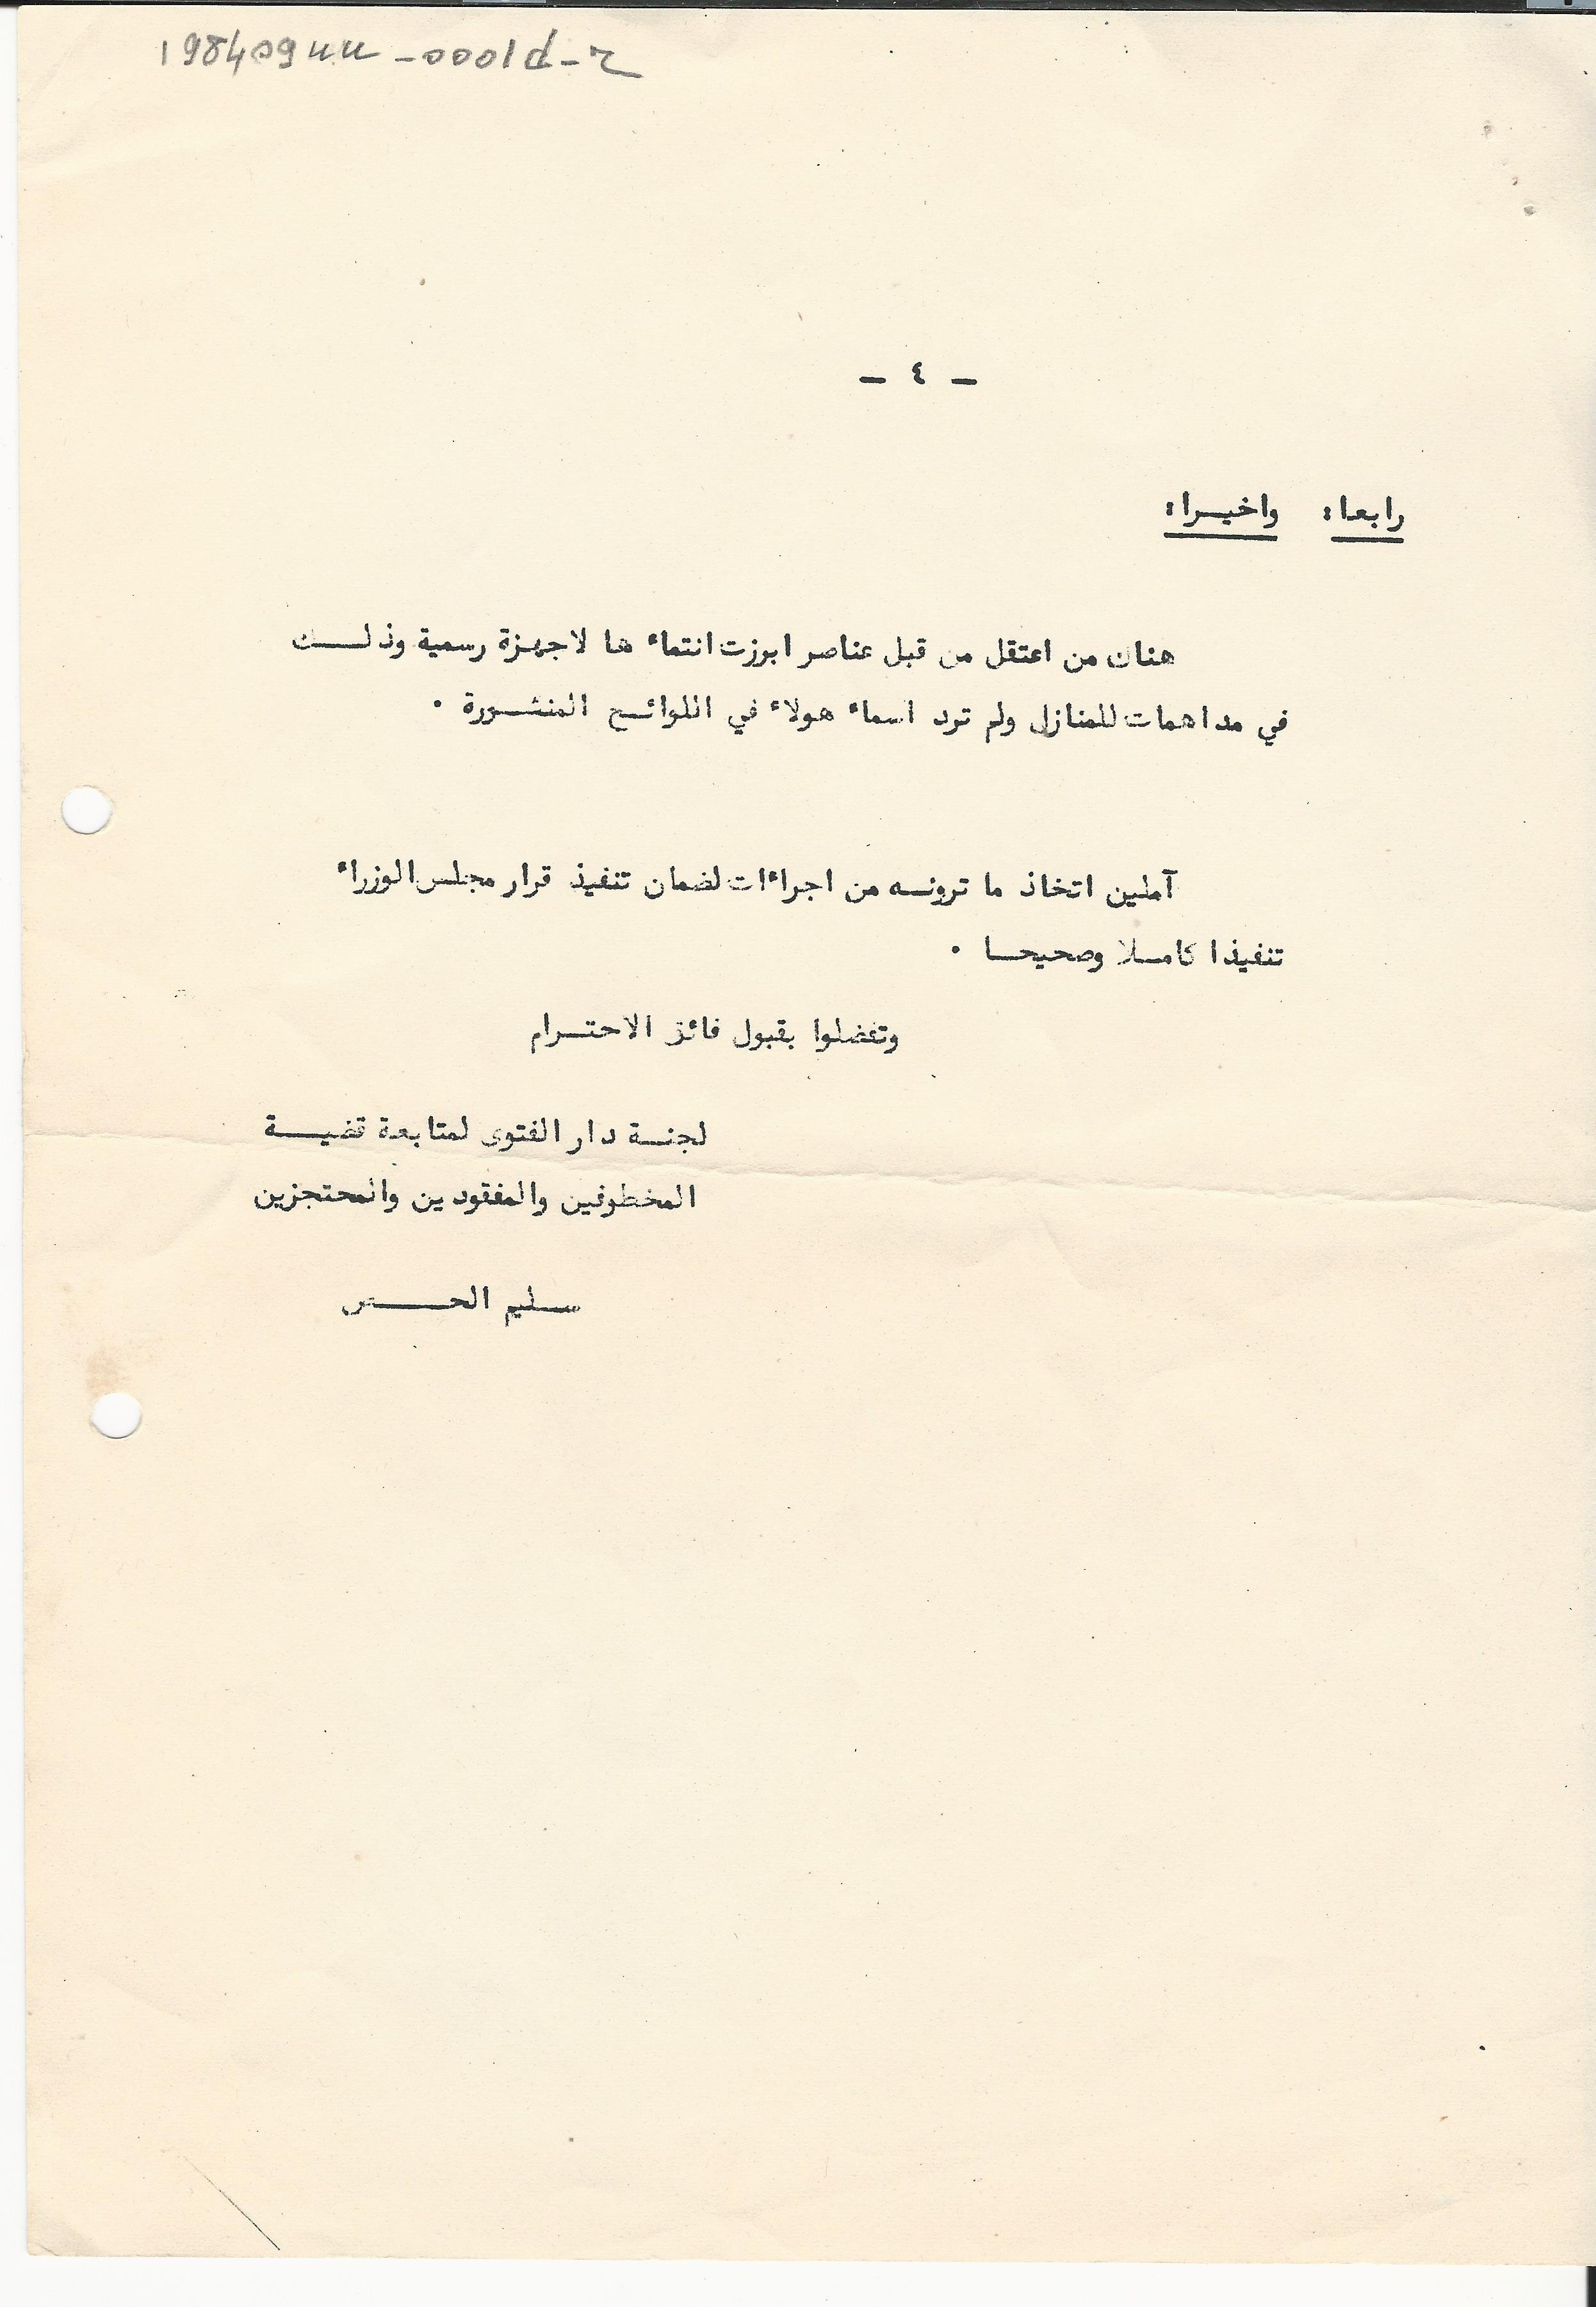 198409nn-0001d-2
- ٤ -
رابعا: واخيرا:
هناك من اعتقل من قبل عناصر ابرزت انتماءها لاجهزة رسمية وذلك
في مداهمات للمنازل ولم ترد اسماء هولاء في اللوائح المنشورة .
آملين اتخاذ ما ترونه من اجراءات لضمان تنفيذ قرار مجلس الوزراء
تنفيذا كاملا وصحيحا .
وتفضلوا بقبول فائق الاحترام
لجنة دار الفتوى لمتابعة قضية
المخطوفين والمفقودين والمحتجزين
سليم الحص